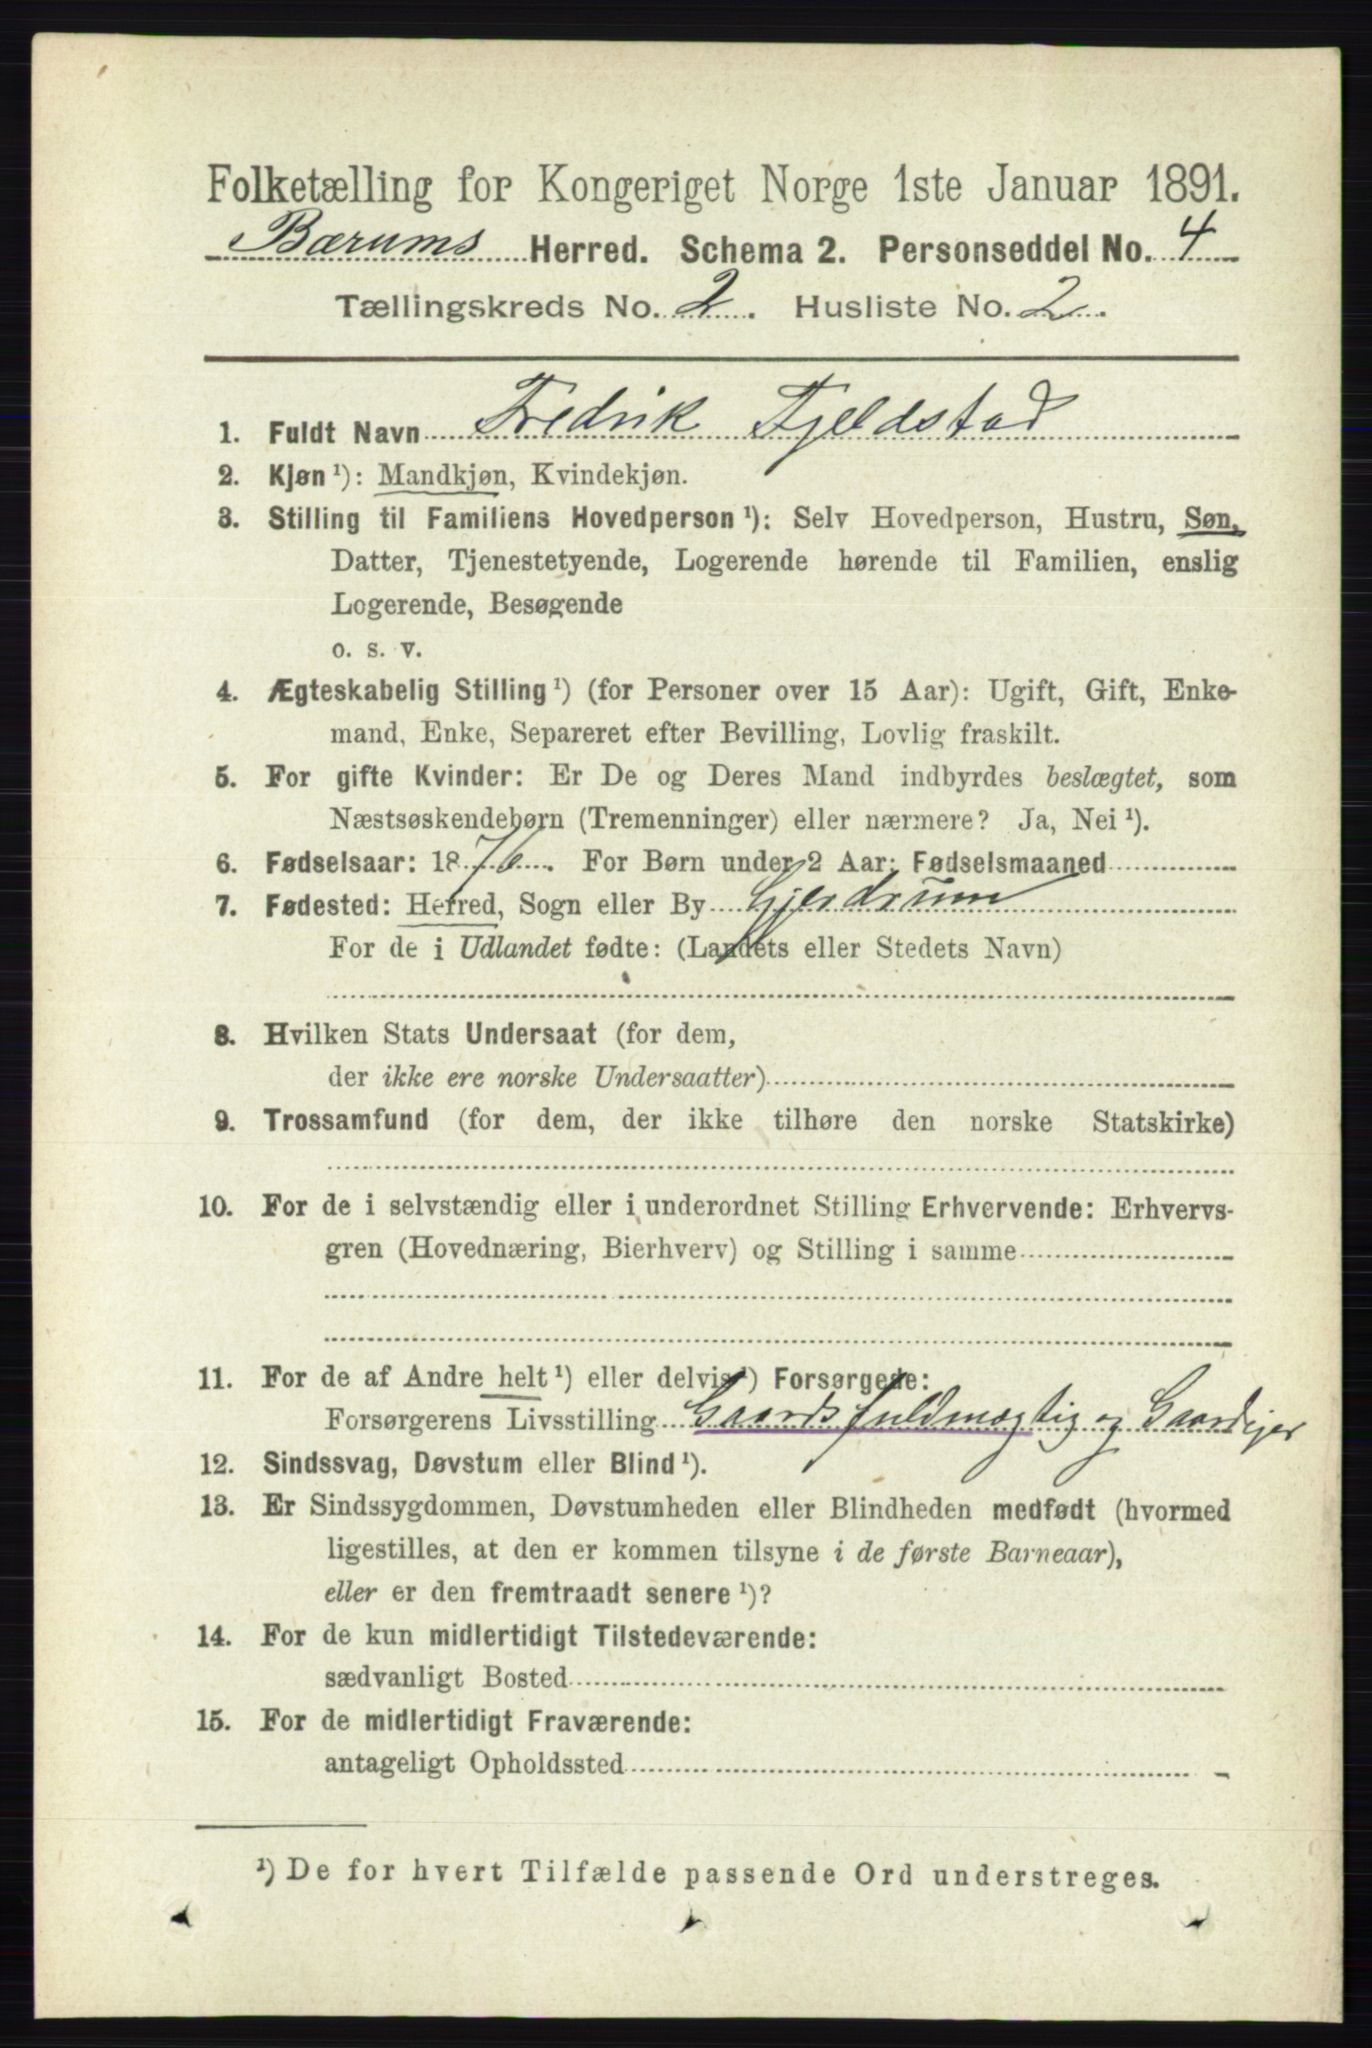 Folketælling for Kongeriget Norge 1ste Januar 1891.
Bærums Herred. Schema 2. Personseddel No. 4
Tællingskreds No. 2. Husliste No. 2.
1. Fuldt Navn Fredrik Fjeldstad
2. Kjøn ¹): Mandkjøn, Kvindekjøn.
3. Stilling til Familiens Hovedperson ¹): Selv Hovedperson, Hustru, Søn,
Datter, Tjenestetyende, Logerende hørende til Familien, enslig
Logerende, Besøgende
o. s. v.
4. Ægteskabelig Stilling ¹) (for Personer over 15 Aar): Ugift, Gift, Enke-
mand, Enke, Separeret efter Bevilling, Lovlig fraskilt.
5. For gifte Kvinder: Er De og Deres Mand indbyrdes beslægtet, som
Næstsøskendebørn (Tremenninger) eller nærmere? Ja, Nei ¹).
6. Fødselsaar: 1876. For Børn under 2 Aar: Fødselsmaaned
7. Fødested: Herred, Sogn eller By Gjerdrum
For de i Udlandet fødte: (Landets eller Stedets Navn)
8. Hvilken Stats Undersaat (for dem,
der ikke ere norske Undersaatter)
9. Trossamfund (for dem, der ikke tilhøre den norske Statskirke)
10. For de i selvstændig eller i underordnet Stilling Erhvervende: Erhvervs-
gren (Hovednæring, Bierhverv) og Stilling i samme
11. For de af Andre helt ¹) eller delvis ¹) Forsørgede:
Forsørgerens Livsstilling Gaardsfuldmægtig og Gaardejer
12. Sindssvag, Døvstum eller Blind ¹).
13. Er Sindssygdommen, Døvstumheden eller Blindheden medfødt (hvormed
ligestilles, at den er kommen tilsyne i de første Barneaar),
eller er den fremtraadt senere ¹)?
14. For de kun midlertidigt Tilstedeværende:
sædvanligt Bosted
15. For de midlertidigt Fraværende:
antageligt Opholdssted
¹) De for hvert Tilfælde passende Ord understreges.